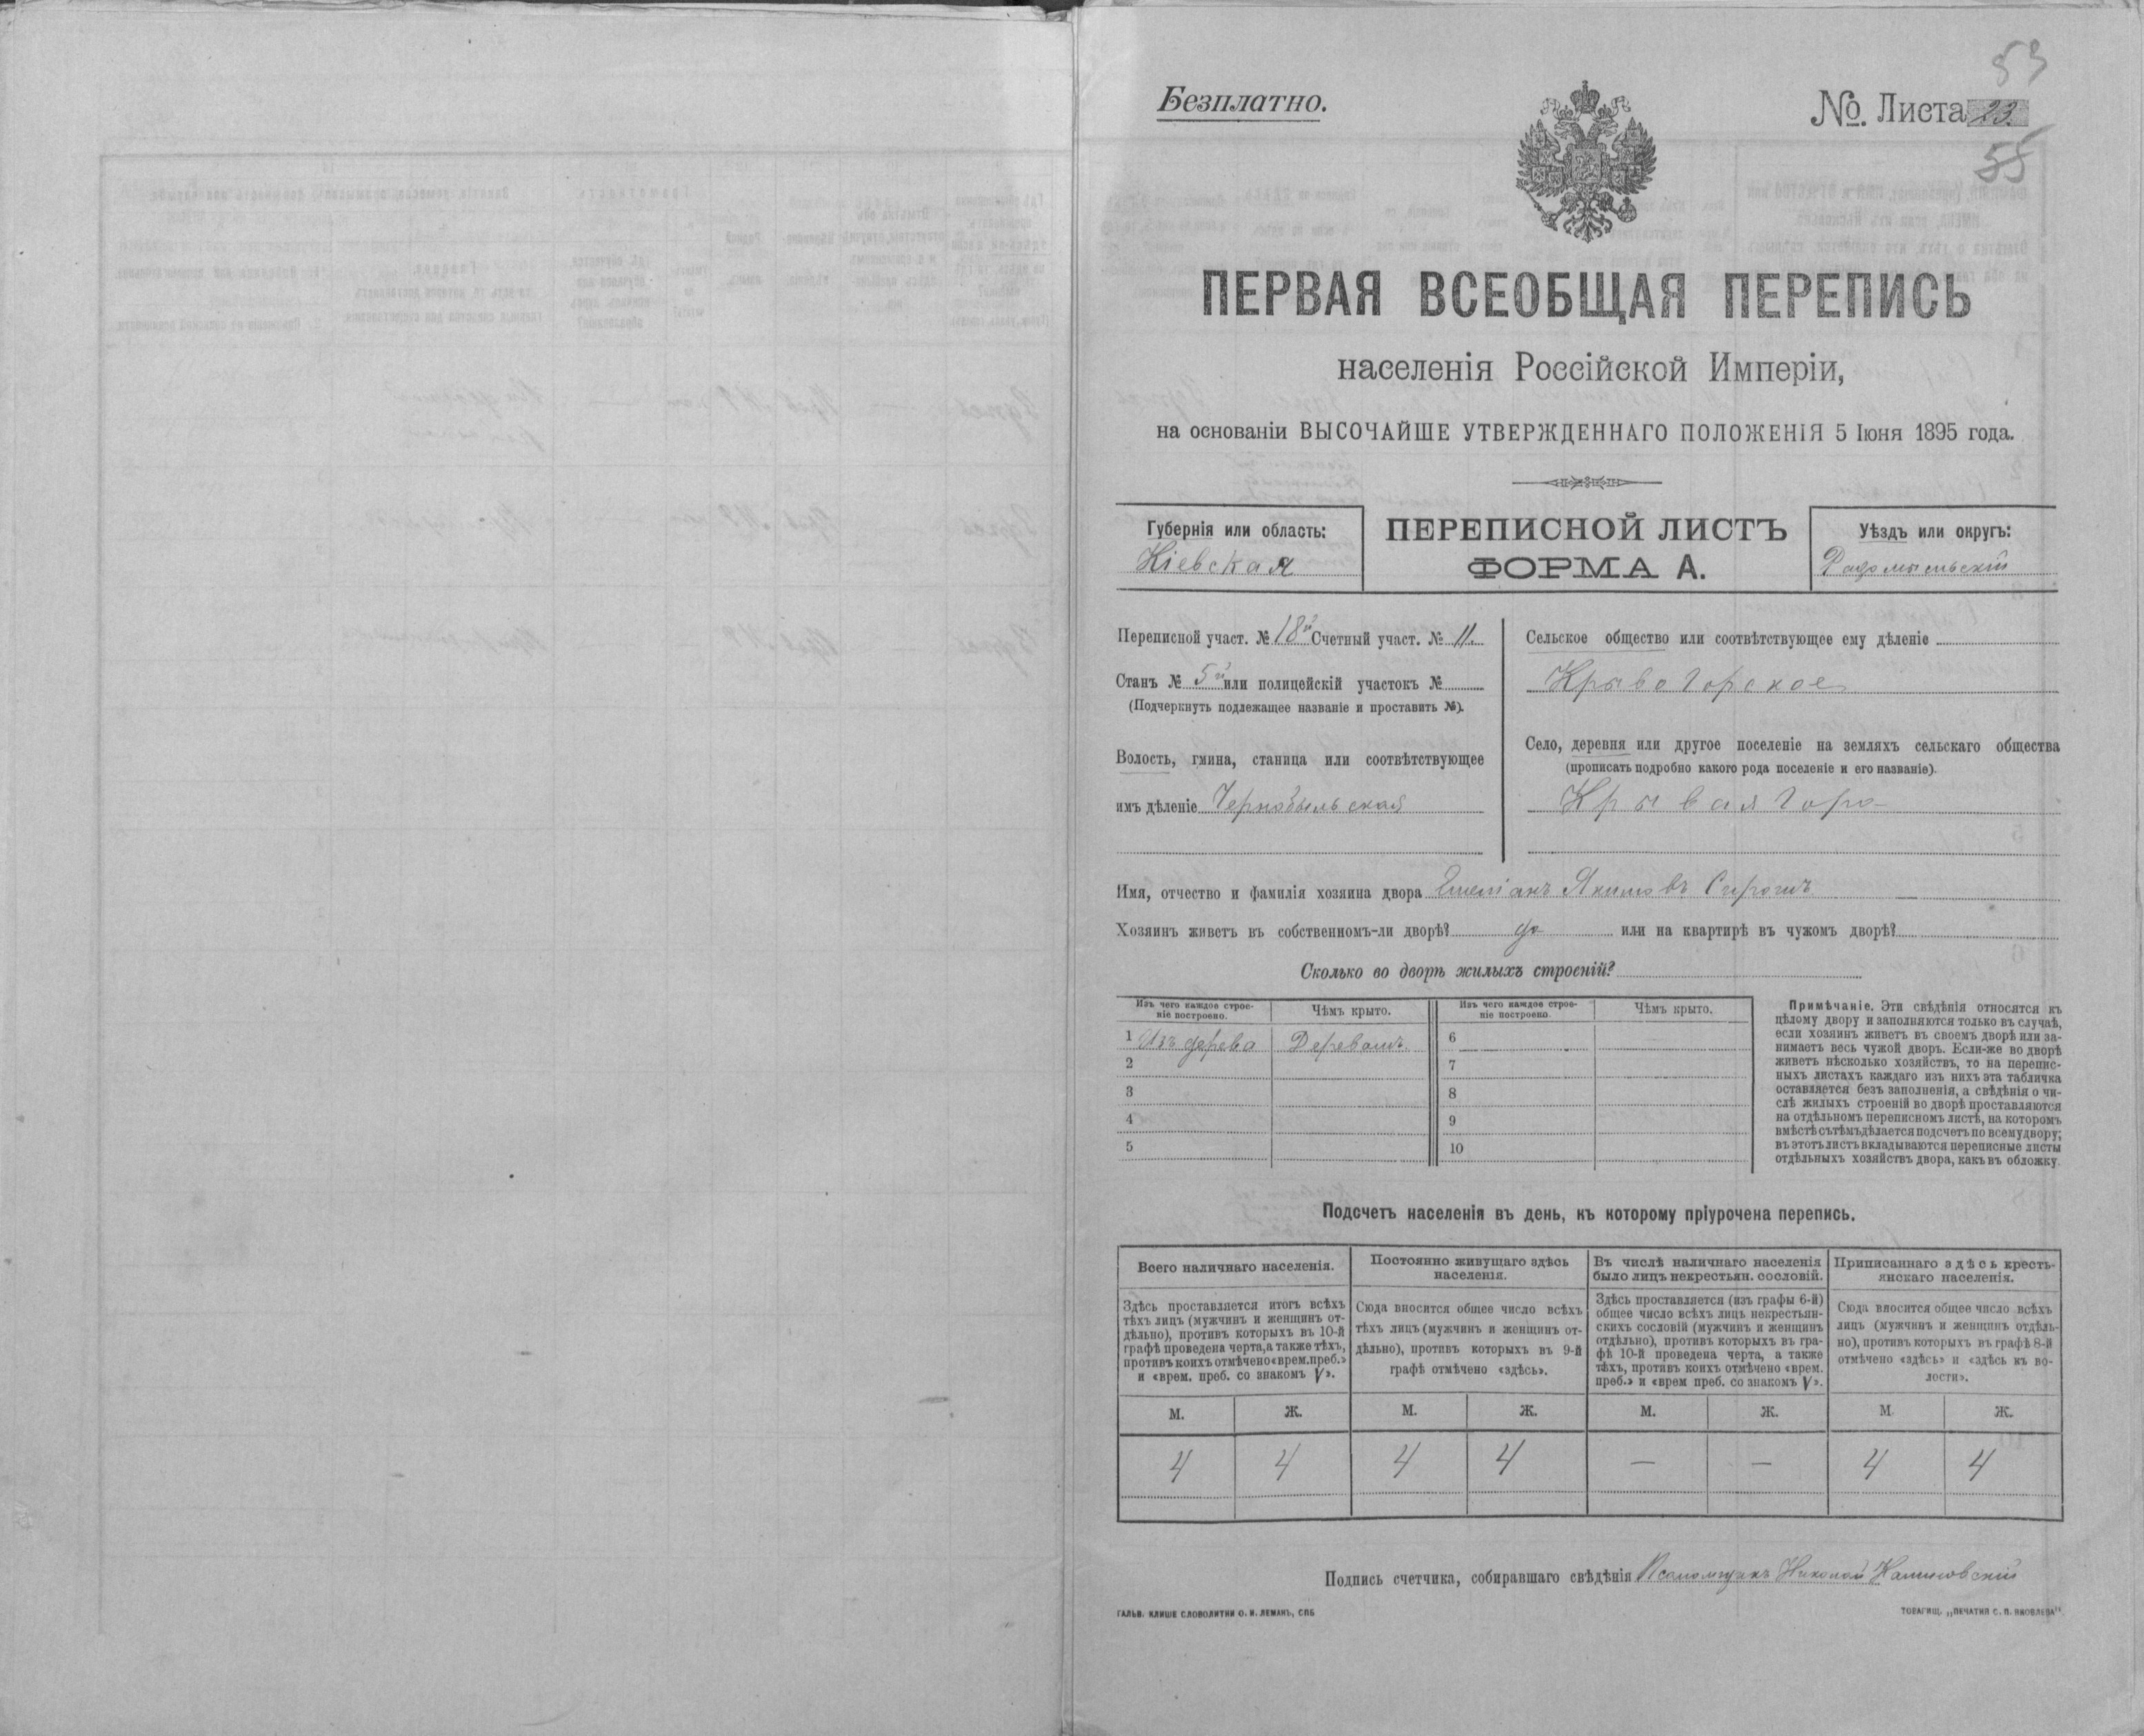 53
Безплатно.
№. Листа 23.
55
ПЕРВАЯ ВСЕОБЩАЯ ПЕРЕПИСЬ
населенія Россійской Имперіи,
на основаніи ВЫСОЧАЙШЕ УТВЕРЖДЕННАГО ПОЛОЖЕНІЯ 5 Іюня 1895 года.
Губернія или область:
Кіевская
ПЕРЕПИСНОЙ ЛИСТЪ
ФОРМА А.
Уѣздъ или округъ:
Радомысльскій
Переписной участ. № 18й Счетный участ. № 11.
Станъ № 5й или полицейскій участокъ №
(Подчеркнуть подлежащее названіе и проставить №).
Волость, гмина, станица или соотвѣтствующее
имъ дѣленіе Чернобыльская
Сельское общество или соотвѣтствующее ему дѣленіе
Крывогорское
Село, деревня или другое поселеніе на земляхъ сельскаго общества
(прописать подробно какого рода поселеніе и его названіе).
Крывая Гора
Имя, отчество и фамилія хозяина двора Якимовъ
Хозяинъ живетъ въ собственномъ-ли дворѣ? да или на квартирѣ въ чужомъ дворѣ?
Сколько во дворѣ жилыхъ строеній?
Изъ чего каждое строе-
ніе построено.
Чѣмъ крыто.
Изъ чего каждое строе-
ніе построено.
Чѣмъ крыто.
1 Изъ дерева Деревомъ. 6
2 7
3 8
4 9
5 10
Примѣчаніе. Эти свѣдѣнія относятся къ
цѣлому двору и заполняются только въ случаѣ,
если хозяинъ живетъ въ своемъ дворѣ или за-
нимаетъ весь чужой дворъ. Если-же во дворѣ
живетъ нѣсколько хозяйствъ, то на перепис-
ныхъ листахъ каждаго изъ нихъ эта табличка
оставляется безъ заполненія, а свѣдѣнія о чи-
слѣ жилыхъ строеній во дворѣ проставляются
на отдѣльномъ переписномъ листѣ, на которомъ
вмѣстѣ съ тѣмъ дѣлается подсчетъ по всему двору;
въ этотъ листъ вкладываются переписные листы
отдѣльныхъ хозяйствъ двора, какъ въ обложку.
Подсчетъ населенія въ день, къ которому пріурочена перепись.
Всего наличнаго населенія.
Здѣсь проставляется итогъ всѣхъ
тѣхъ лицъ (мужчинъ и женщинъ от-
дѣльно), противъ которыхъ въ 10-й
графѣ проведена черта, а также тѣхъ,
противъ коихъ отмѣчено «врем. преб.»
и «врем. преб. со знакомъ V».
Постоянно живущаго здѣсь
населенія.
Сюда вносится общее число всѣхъ
тѣхъ лицъ (мужчинъ и женщинъ от-
дѣльно), противъ которыхъ въ 9-й
графѣ отмѣчено «здѣсь».
Въ числѣ наличнаго населенія
было лицъ некрестьян. сословій.
Здѣсь проставляется (изъ графы 6-й)
общее число всѣхъ лицъ некрестьян-
скихъ сословій (мужчинъ и женщинъ
отдѣльно), противъ которыхъ въ гра-
фѣ 10-й проведена черта, а также
тѣхъ, противъ коихъ отмѣчено «врем.
преб.» и «врем преб. со знакомъ V».
Приписаннаго здѣсь кресть-
янскаго населенія.
Сюда вносится общее число всѣхъ
лицъ (мужчинъ и женщинъ отдѣль-
но), противъ которыхъ въ графѣ 8-й
отмѣчено «здѣсь» и «здѣсь къ во-
лости».
М. Ж. М. Ж. М. Ж. М. Ж.
4 4 4 4 — — 4 4
Подпись счетчика, собиравшаго свѣдѣнія Псаломщикъ Николай
ГАЛЬВ. КЛИШЕ СЛОВОЛИТНИ О. И. ЛЕМАНЪ, СПБ
ТОВАРИЩ. „ПЕЧАТНЯ С. П. ЯКОВЛЕВА".